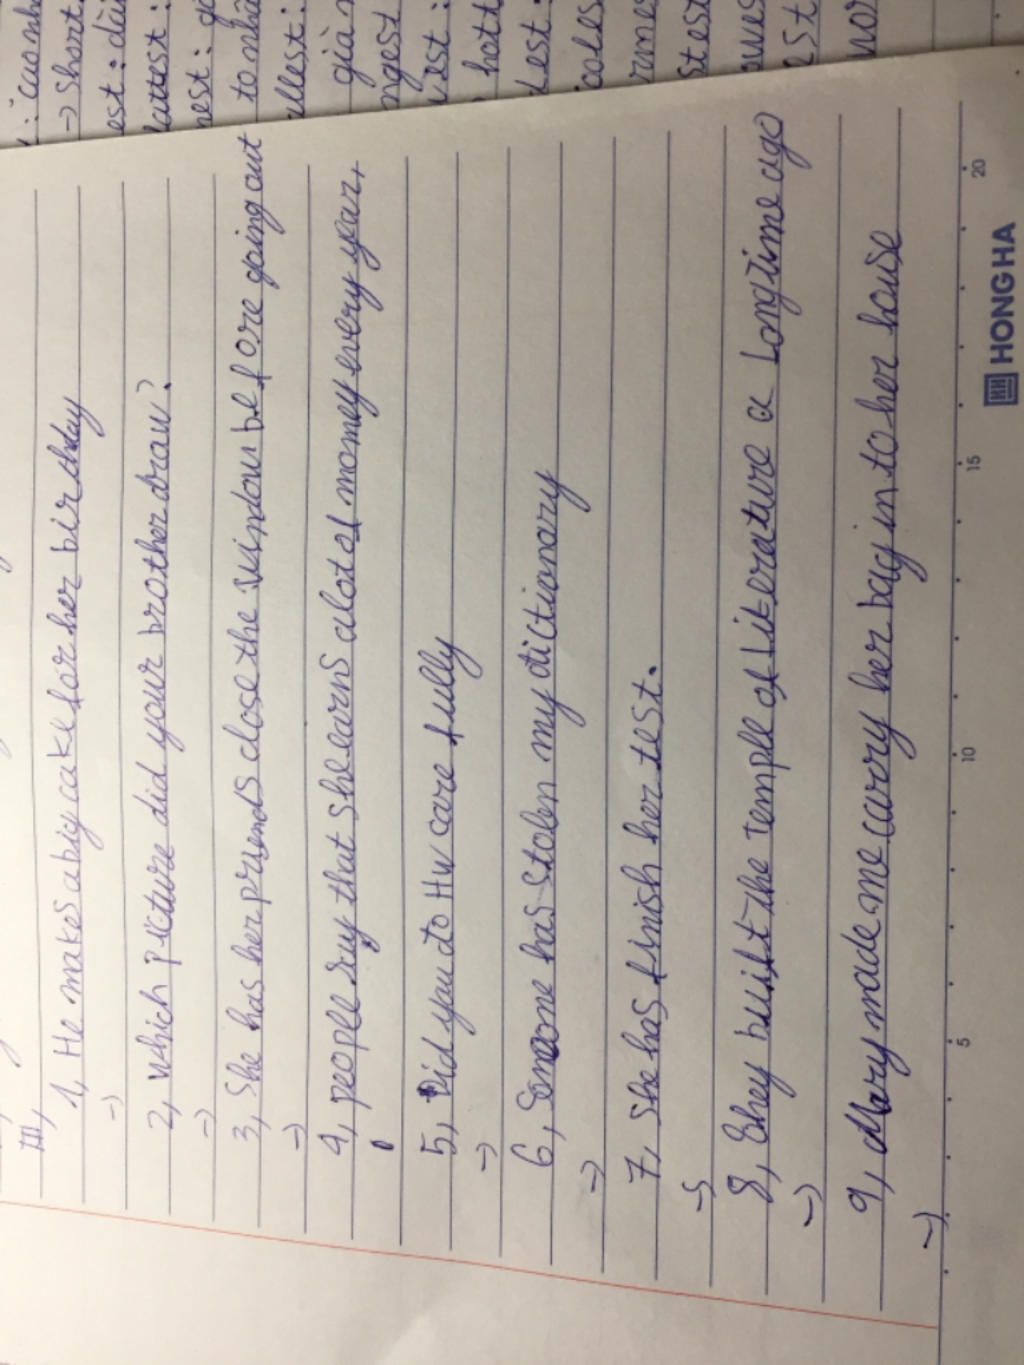 : cao nh
→ short
est : dài
lattest :
nest : g
to nhấ
allest :
già n
ngest
vest :
hott
dest :
coles
rmes
stest
owes
est
wor
III,
1, He makes a big cake for her birthday
→
2, which picture did your brother draw?
→
3, She has her friends close the window before going out
→
4, people say that she earns a lot of money every year,
5, Did you do HW care fully
→
6, Someone has stolen my dictionary
→
7, she has finish her test.
→
8, They built the temple of Literature a Long time ago
→
9, Mary made me carry her bag in to her house
→
5
10
15
20
HH HONG HA